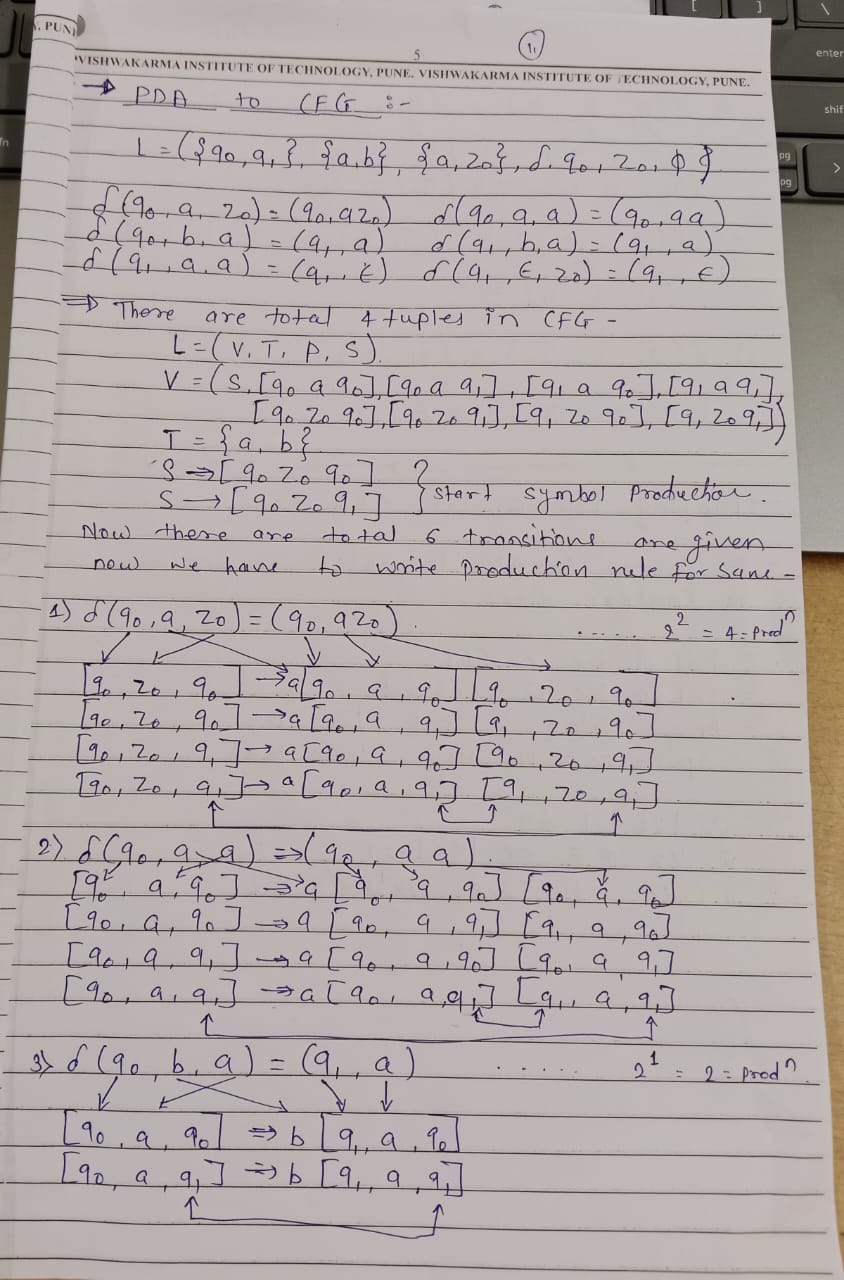 , PUNE
1.
5
VISHWAKARMA INSTITUTE OF TECHNOLOGY, PUNE. VISHWAKARMA INSTITUTE OF TECHNOLOGY, PUNE.
→ PDA to CFG :-
L = ({q0, q1}, {a,b}, {a, z0}, δ, q0, z0, ϕ}
δ(q0, a, z0) = (q0, az0) δ(q0, a, a) = (q0, aa)
δ(q0, b, a) = (q1, a) δ(q1, b, a) = (q1, a)
δ(q1, a, a) = (q1, ε) δ(q1, ε, z0) = (q1, ε)
⇒ There are total 4 tuples in CFG -
L = (V, T, P, S).
V = (S, [q0 a q0], [q0 a q1], [q1 a q0], [q1 a q1],
[q0 z0 q0], [q0 z0 q1], [q1 z0 q0], [q1 z0 q1])
T = {a, b}
S → [q0 z0 q0]
S → [q0 z0 q1] } start symbol production.
Now there are total 6 transitions are given
now we have to write production rule for same -
1) δ(q0, a, z0) = (q0, az0) ..... 2^2 = 4 = prod^n
[q0, z0, q0] → a[q0, a, q0] [q0, z0, q0]
[q0, z0, q0] → a[q0, a, q1] [q1, z0, q0]
[q0, z0, q1] → a[q0, a, q0] [q0, z0, q1]
[q0, z0, q1] → a[q0, a, q1] [q1, z0, q1]
2) δ(q0, a, a) ⇒ (q0, a a).
[q0, a, q0] → a [q0, a, q0] [q0, a, q0]
[q0, a, q0] → a [q0, a, q1] [q1, a, q0]
[q0, a, q1] → a [q0, a, q0] [q0, a q1]
[q0, a, q1] → a [q0, a, q1] [q1, a, q1]
3) δ(q0, b, a) = (q1, a) ..... 2^1 = 2 = prod^n.
[q0, a, q0] ⇒ b [q1, a, q0]
[q0, a, q1] ⇒ b [q1, a, q1]
[
]
\
enter
shif
pg
pg
>
fn